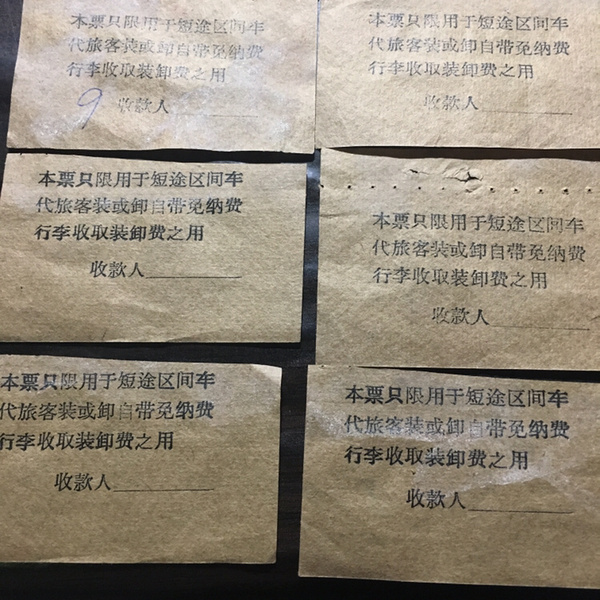 本票只限用于短途区间车
代旅客装或卸自带免纳费
行李收取装卸费之用
9 收款人
本票只限用于短途区间车
代旅客装或卸自带免纳费
行李收取装卸费之用
收款人
本票只限用于短途区间车
代旅客装或卸自带免纳费
行李收取装卸费之用
收款人
本票只限用于短途区间车
代旅客装或卸自带免纳费
行李收取装卸费之用
收款人
本票只限用于短途区间车
代旅客装或卸自带免纳费
行李收取装卸费之用
收款人
本票只限用于短途区间车
代旅客装或卸自带免纳费
行李收取装卸费之用
收款人